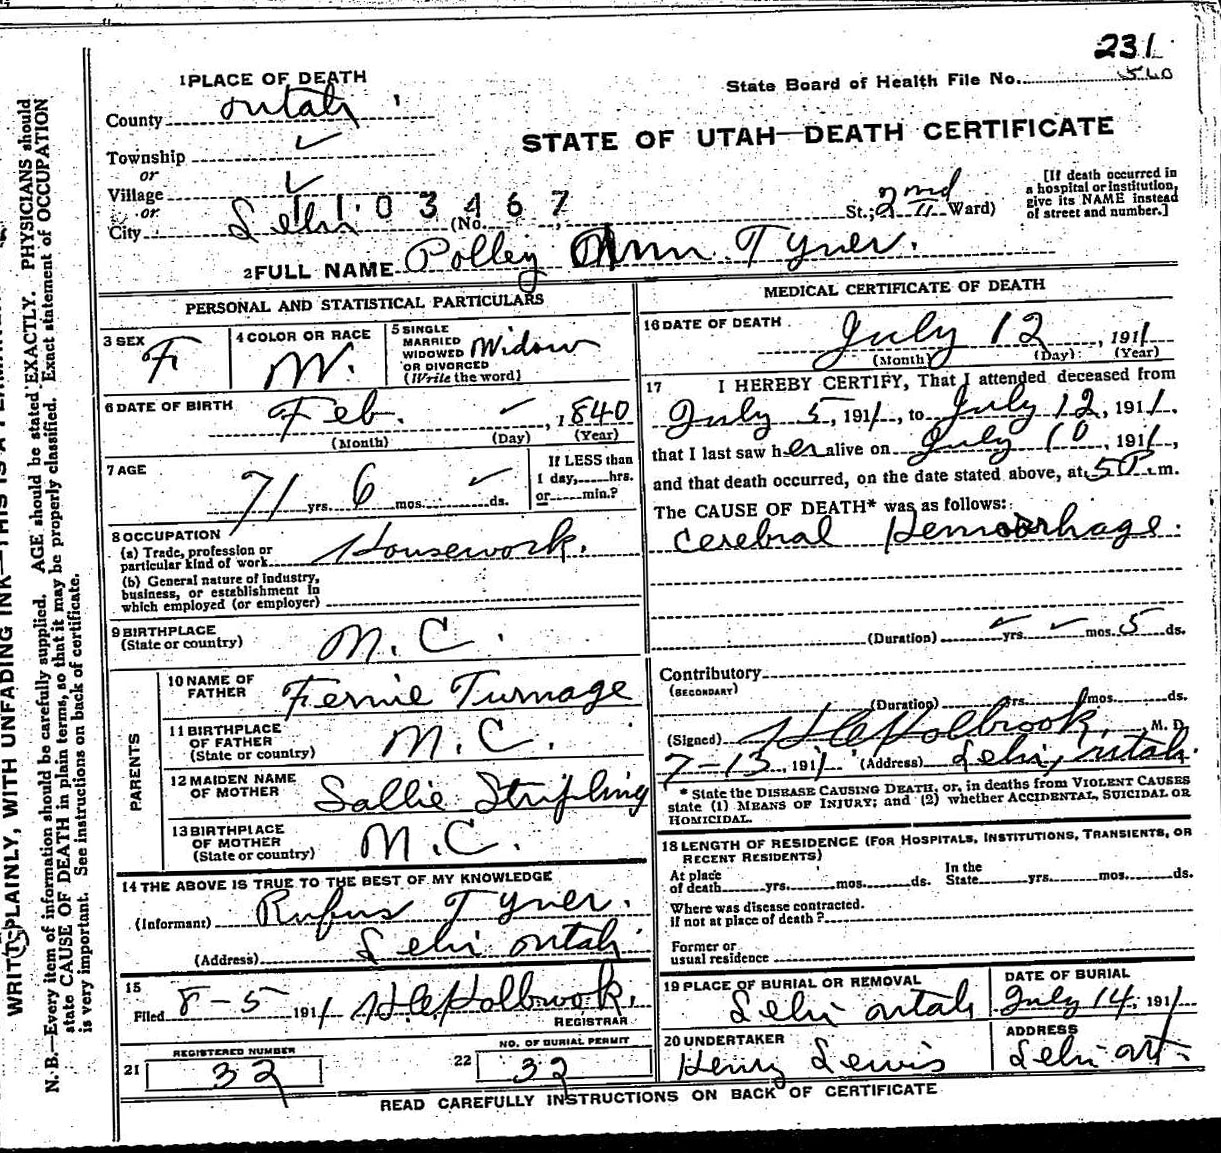 231
State Board of Health File No. 560
1 PLACE OF DEATH
County Utah
Township
or
Village
or
City Lehi (No. St.; 2nd Ward)
1103467
STATE OF UTAH—DEATH CERTIFICATE
[If death occurred in
a hospital or institution,
give its NAME instead
of street and number.]
2 FULL NAME Polley Ann Tyner.
PERSONAL AND STATISTICAL PARTICULARS
3 SEX F
4 COLOR OR RACE W.
5 SINGLE
MARRIED
WIDOWED
OR DIVORCED
(Write the word) Widow
6 DATE OF BIRTH Feb. , 1840
(Month) (Day) (Year)
7 AGE 71 yrs. 6 mos. ds.
If LESS than
1 day, hrs.
or min.?
8 OCCUPATION
(a) Trade, profession or
particular kind of work Housework.
(b) General nature of industry,
business, or establishment in
which employed (or employer)
9 BIRTHPLACE
(State or country) N.C.
PARENTS
10 NAME OF
FATHER Fernie Turnage
11 BIRTHPLACE
OF FATHER
(State or country) N.C.
12 MAIDEN NAME
OF MOTHER Sallie Stripling
13 BIRTHPLACE
OF MOTHER
(State or country) N.C.
14 THE ABOVE IS TRUE TO THE BEST OF MY KNOWLEDGE
(Informant) Rufus Tyner.
(Address) Lehi Utah
15
Filed 8-5 1911 H.C. Holbrook.
REGISTRAR
REGISTERED NUMBER
21 32
NO. OF BURIAL PERMIT
22 32
MEDICAL CERTIFICATE OF DEATH
16 DATE OF DEATH July 12, 1911
(Month) (Day) (Year)
17 I HEREBY CERTIFY, That I attended deceased from
July 5, 1911, to July 12, 1911.
that I last saw her alive on July 10, 1911,
and that death occurred, on the date stated above, at 5 P. m.
The CAUSE OF DEATH* was as follows:
Cerebral Hemorrhage.
(Duration) yrs. mos. 5 ds.
Contributory
(SECONDARY)
(Duration) yrs. mos. ds.
(Signed) H.C. Holbrook, M. D.
7-13, 1911 (Address) Lehi, Utah.
* State the DISEASE CAUSING DEATH, or, in deaths from VIOLENT CAUSES
state (1) MEANS OF INJURY; and (2) whether ACCIDENTAL, SUICIDAL OR
HOMICIDAL.
18 LENGTH OF RESIDENCE (FOR HOSPITALS, INSTITUTIONS, TRANSIENTS, OR
RECENT RESIDENTS)
At place
of death yrs. mos. ds.
In the
State yrs. mos. ds.
Where was disease contracted.
if not at place of death?
Former or
usual residence
19 PLACE OF BURIAL OR REMOVAL
Lehi Utah
DATE OF BURIAL
July 14, 1911
20 UNDERTAKER
Henry Lewis
ADDRESS
Lehi Ut.
READ CAREFULLY INSTRUCTIONS ON BACK OF CERTIFICATE
N. B.—Every item of information should be carefully supplied. AGE should be stated EXACTLY. PHYSICIANS should
state CAUSE OF DEATH in plain terms, so that it may be properly classified. Exact statement of OCCUPATION
is very important. See instructions on back of certificate.
PLAINLY, WITH UNFADING INK—THIS IS A